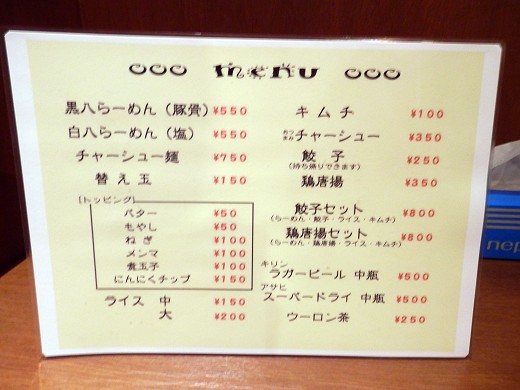 menu
黒八らーめん（豚骨）¥550
白八らーめん（塩）¥550
チャーシュー麺 ¥750
替え玉 ¥150
(トッピング)
バター ¥50
もやし ¥50
ねぎ ¥100
メンマ ¥100
煮玉子 ¥100
にんにくチップ ¥150
ライス 中 ¥150
大 ¥200
キムチ ¥100
おつまみチャーシュー ¥350
餃子 ¥250
(持ち帰りできます)
鶏唐揚 ¥350
餃子セット ¥800
(らーめん・餃子・ライス・キムチ)
鶏唐揚セット ¥800
(らーめん・鶏唐揚・ライス・キムチ)
キリン
ラガービール 中瓶 ¥500
アサヒ
スーパードライ 中瓶 ¥500
ウーロン茶 ¥250
nep